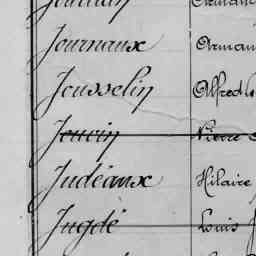 Journaux Arman
Jousselin Alfred
Jouvin Pierre
Judéaux Hilaire
Jugdé Louis